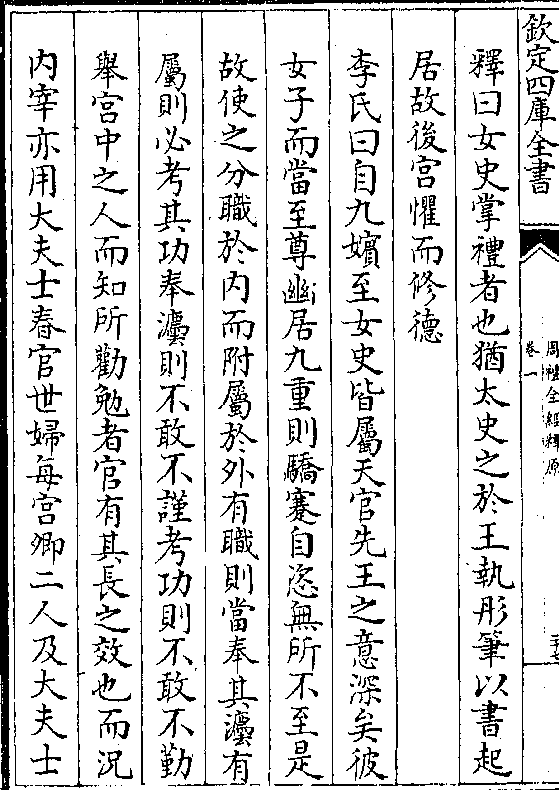 欽定四庫全書
周禮全經釋原
卷一
釋曰女史掌禮者也猶太史之於王執彤筆以書起
居故後宫懼而修德
李氏曰自九嬪至女史皆屬天官先王之意深矣彼
女子而當至尊幽居九重則驕蹇自恣無所不至是
故使之分職於内而附屬於外有職則當奉其灋有
屬則必考其功奉灋則不敢不謹考功則不敢不勤
舉宫中之人而知所勸勉者官有其長之效也而況
内宰亦用大夫士春官世婦每宫卿二人及大夫士